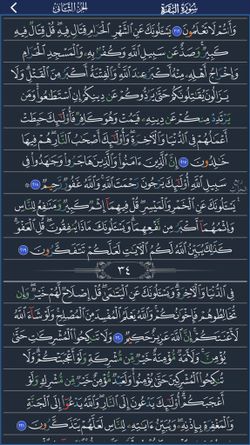 الجزء الثاني سورة البقرة
وَأَنتُمْ لَا تَعْلَمُونَ ٢١٦ يَسْـَٔلُونَكَ عَنِ الشَّهْرِ الْحَرَامِ قِتَالٍ فِيهِ قُلْ قِتَالٌ فِيهِ
كَبِيرٌ وَصَدٌّ عَن سَبِيلِ اللَّهِ وَكُفْرٌ بِهِ وَالْمَسْجِدِ الْحَرَامِ
وَإِخْرَاجُ أَهْلِهِ مِنْهُ أَكْبَرُ عِندَ اللَّهِ وَالْفِتْنَةُ أَكْبَرُ مِنَ الْقَتْلِ وَلَا
يَزَالُونَ يُقَاتِلُونَكُمْ حَتَّىٰ يَرُدُّوكُمْ عَن دِينِكُمْ إِنِ اسْتَطَاعُوا وَمَن
يَرْتَدِدْ مِنكُمْ عَن دِينِهِ فَيَمُتْ وَهُوَ كَافِرٌ فَأُولَٰئِكَ حَبِطَتْ
أَعْمَالُهُمْ فِي الدُّنْيَا وَالْآخِرَةِ وَأُولَٰئِكَ أَصْحَابُ النَّارِ هُمْ فِيهَا
خَالِدُونَ ٢١٧ إِنَّ الَّذِينَ ءَامَنُوا وَالَّذِينَ هَاجَرُوا وَجَاهَدُوا فِي
سَبِيلِ اللَّهِ أُولَٰئِكَ يَرْجُونَ رَحْمَتَ اللَّهِ وَاللَّهُ غَفُورٌ رَّحِيمٌ ٢١٨
يَسْـَٔلُونَكَ عَنِ الْخَمْرِ وَالْمَيْسِرِ قُلْ فِيهِمَا إِثْمٌ كَبِيرٌ وَمَنَافِعُ لِلنَّاسِ
وَإِثْمُهُمَا أَكْبَرُ مِن نَّفْعِهِمَا وَيَسْـَٔلُونَكَ مَاذَا يُنفِقُونَ قُلِ الْعَفْوَ
كَذَٰلِكَ يُبَيِّنُ اللَّهُ لَكُمُ الْآيَاتِ لَعَلَّكُمْ تَتَفَكَّرُونَ ٢١٩
٣٤
فِي الدُّنْيَا وَالْآخِرَةِ وَيَسْـَٔلُونَكَ عَنِ الْيَتَامَىٰ قُلْ إِصْلَاحٌ لَّهُمْ خَيْرٌ وَإِن
تُخَالِطُوهُمْ فَإِخْوَانُكُمْ وَاللَّهُ يَعْلَمُ الْمُفْسِدَ مِنَ الْمُصْلِحِ وَلَوْ شَاءَ اللَّهُ
لَأَعْنَتَكُمْ إِنَّ اللَّهَ عَزِيزٌ حَكِيمٌ ٢٢٠ وَلَا تَنكِحُوا الْمُشْرِكَاتِ حَتَّىٰ
يُؤْمِنَّ وَلَأَمَةٌ مُّؤْمِنَةٌ خَيْرٌ مِّن مُّشْرِكَةٍ وَلَوْ أَعْجَبَتْكُمْ وَلَا
تُنكِحُوا الْمُشْرِكِينَ حَتَّىٰ يُؤْمِنُوا وَلَعَبْدٌ مُّؤْمِنٌ خَيْرٌ مِّن مُّشْرِكٍ وَلَوْ
أَعْجَبَكُمْ أُولَٰئِكَ يَدْعُونَ إِلَى النَّارِ وَاللَّهُ يَدْعُو إِلَى الْجَنَّةِ
وَالْمَغْفِرَةِ بِإِذْنِهِ وَيُبَيِّنُ ءَايَاتِهِ لِلنَّاسِ لَعَلَّهُمْ يَتَذَكَّرُونَ ٢٢١